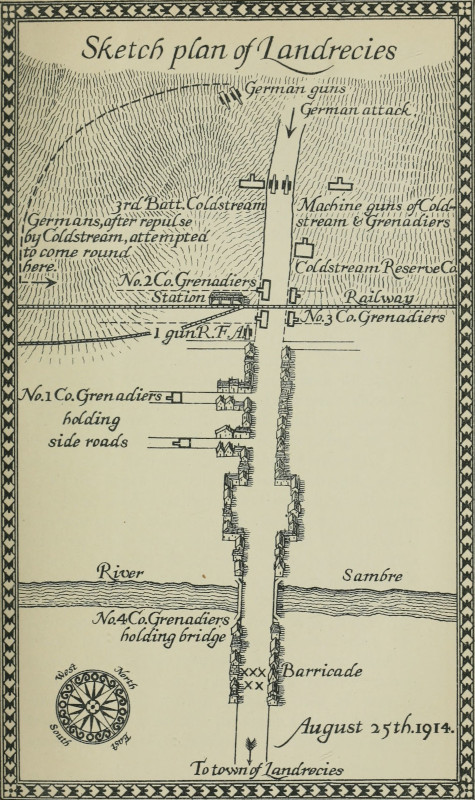 Sketch plan of Landrecies
German guns
German attack.
3rd Batt. Coldstream
Machine guns of Cold-
stream & Grenadiers
Germans, after repulse
by Coldstream, attempted
to come round
here.
Coldstream Reserve Co.
No. 2 Co. Grenadiers
Station
Railway
No. 3 Co. Grenadiers
1 gun R.F.A.
No. 1 Co. Grenadiers
holding
side roads
River
Sambre
No. 4 Co. Grenadiers
holding bridge
XXX
XX
Barricade
West
North
South
East
August 25th. 1914.
To town of Landrecies